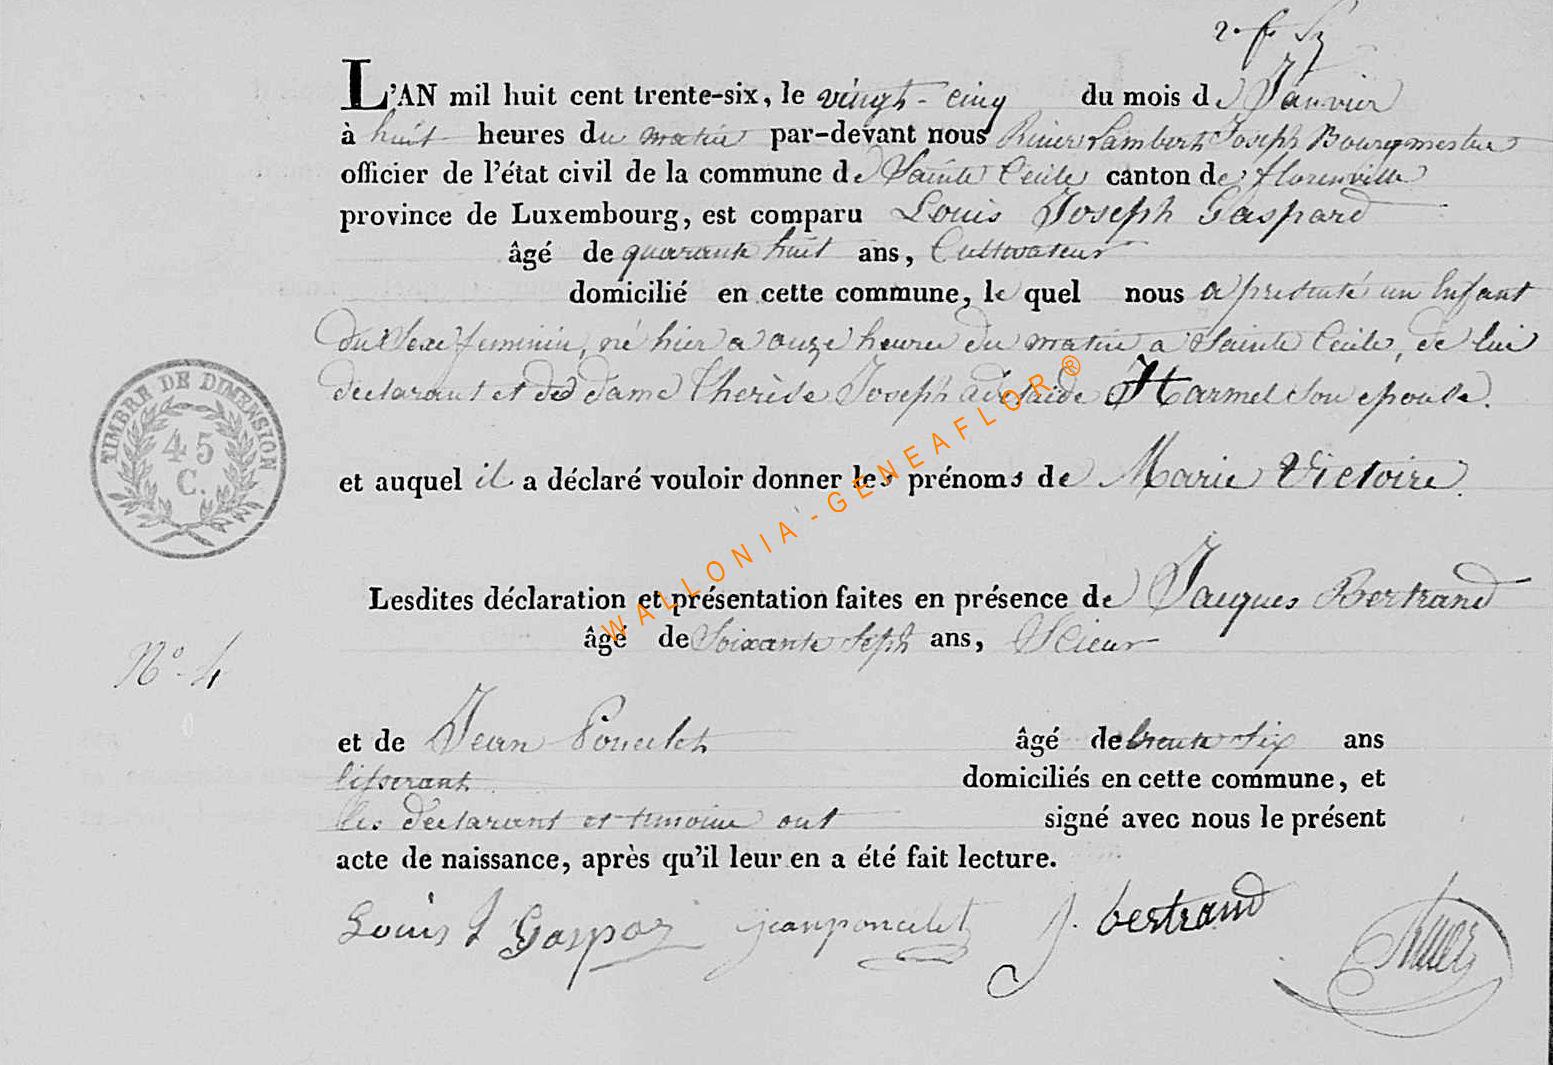 L'AN mil huit cent trente-six, le vingt-cinq du mois de Janvier
à huit heures du matin par-devant nous Lambert Joseph Bourgmestre
officier de l'état civil de la commune de Sainte Cécile canton de florenville
province de Luxembourg, est comparu Louis Joseph Gaspard
âgé de quarante huit ans, Cultivateur
domicilié en cette commune, le quel nous a présenté un Enfant
du Sexe feminin, né hier a onze heures du matin a Sainte Cécile, de lui
declarant et de dame Therèse Joseph adelaide Harmel son epouse.
TIMBRE DE DIMENSION
45
C.
et auquel il a déclaré vouloir donner les prénoms de Marie Victoire.
Lesdites déclaration et présentation faites en présence de Jacques Bertrand
âgé de Soixante Sept ans, Scieur
N° 4
et de Jean Poncelet âgé de trente Six ans
domiciliés en cette commune, et
Les declarant et temoins ont signé avec nous le présent
acte de naissance, après qu'il leur en a été fait lecture.
Louis J Gaspar jean poncelet J. bertrand
WALLONIA-GENEAFLOR®